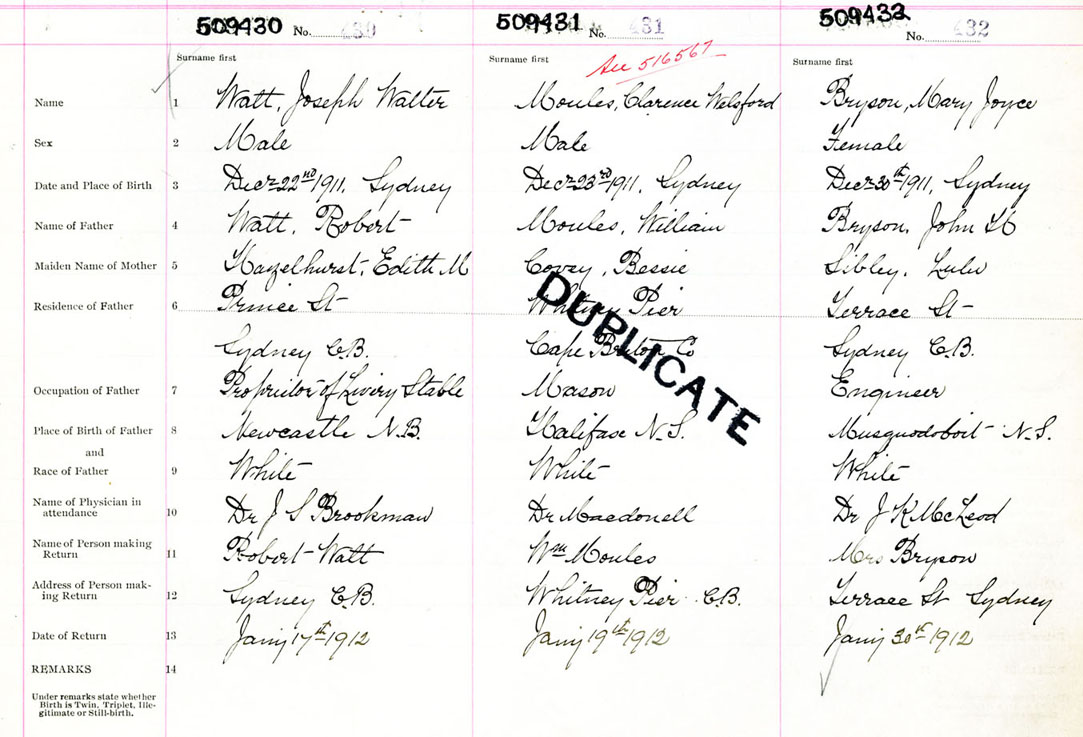 509430 No. 430 509431 No. 431 509432 No. 432
Surname first Surname first See 516567 Surname first
Name 1 Watt, Joseph Walter Moules, Clarence Welsford Bryson, Mary Joyce
Sex 2 Male Male Female
Date and Place of Birth 3 Decr 22nd 1911, Sydney Decr 23rd 1911, Sydney Decr 30th 1911, Sydney
Name of Father 4 Watt, Robert Moules, William Bryson, John
Maiden Name of Mother 5 Hazelhurst, Edith M Covey, Bessie Sibley, Lulu
Residence of Father 6 Prince St Whitney Pier Terrace St
Sydney C.B. Cape Breton Co Sydney C.B.
DUPLICATE
Occupation of Father 7 Proprietor of Livery Stable Mason Engineer
Place of Birth of Father 8 Newcastle N.B. Halifax N.S. Musquodoboit N.S.
and
Race of Father 9 White White White
Name of Physician in
attendance 10 Dr J S Brookman Dr Macdonell Dr J K McLeod
Name of Person making
Return 11 Robert Watt Wm Moules Mrs Bryson
Address of Person mak-
ing Return 12 Sydney C.B. Whitney Pier C.B. Terrace St Sydney
Date of Return 13 Jany 17th 1912 Jany 19th 1912 Jany 30th 1912
REMARKS 14
Under remarks state whether
Birth is Twin, Triplet, Ille-
gitimate or Still-birth.